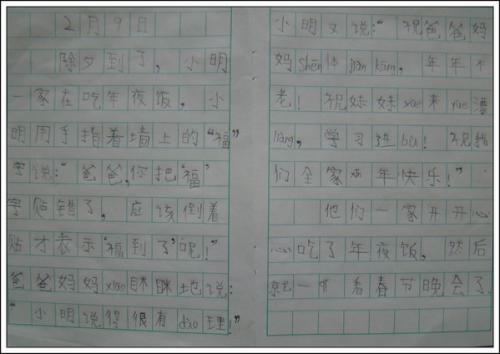 2月9日
除夕到了，小明
一家在吃年夜饭。小
明用手指着墙上的“福”
字说：“爸爸，你把“福”
字贴错了，应该倒着
贴才表示“福到了”呢！”
爸爸妈妈xiào眯眯地说：
“小明说得很有dào理！”
小明又说：“祝爸爸妈
妈shēn体jiàn kāng，年年不
老！祝妹妹yuè来yuè漂
liang，学习进bù！祝我
们全家新年快乐！”
他们一家开开心
心吃了年夜饭，然后
就一起看春节晚会了。